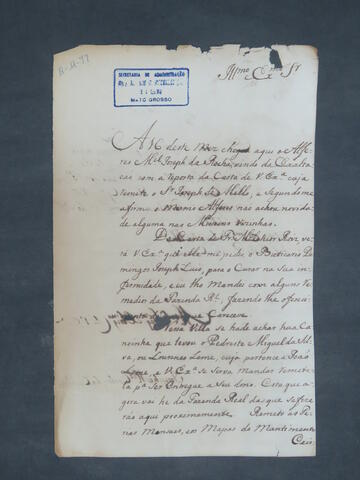 B-11-77
SECRETARIA DE ADMINISTRAÇÃO
MATO GROSSO
Illmo e Exmo Sr
A 16 deste mez chegou aqui o Alfe
res Mel Joseph da Rocha, vindo de
com a reposta da Carta de V. Exa cuja
remete o Sr Joseph de Mello, e Segundo me
afirma o mesmo Alferes não achou novida
de alguma nas Missoens Vizinhas.
Da Carta de Fr. Roiz ve
rá V. Exa que me pede o Boticario Do
mingos Joseph Luis, para o Curar na Sua in
firmidade, e eu lho Mandei com alguns re
medios da Fazenda Rl, fazendo lhe o
Carecece.
Nesa Villa se hade achar hua Ca
noinha que levou o Pedreste Miguel da Sil
va, ou Lourenço Leme, cuja pertence a João
Leme, e V. Exa se Sirva Mandar remetela
pa Ser Entregue a Seu dono. Esta que a
gora vai he da Fazenda Real das que Se fize
rão aqui proximamente. Remeto as Fe
rias Mensaes, eos Mapas do Mantimento